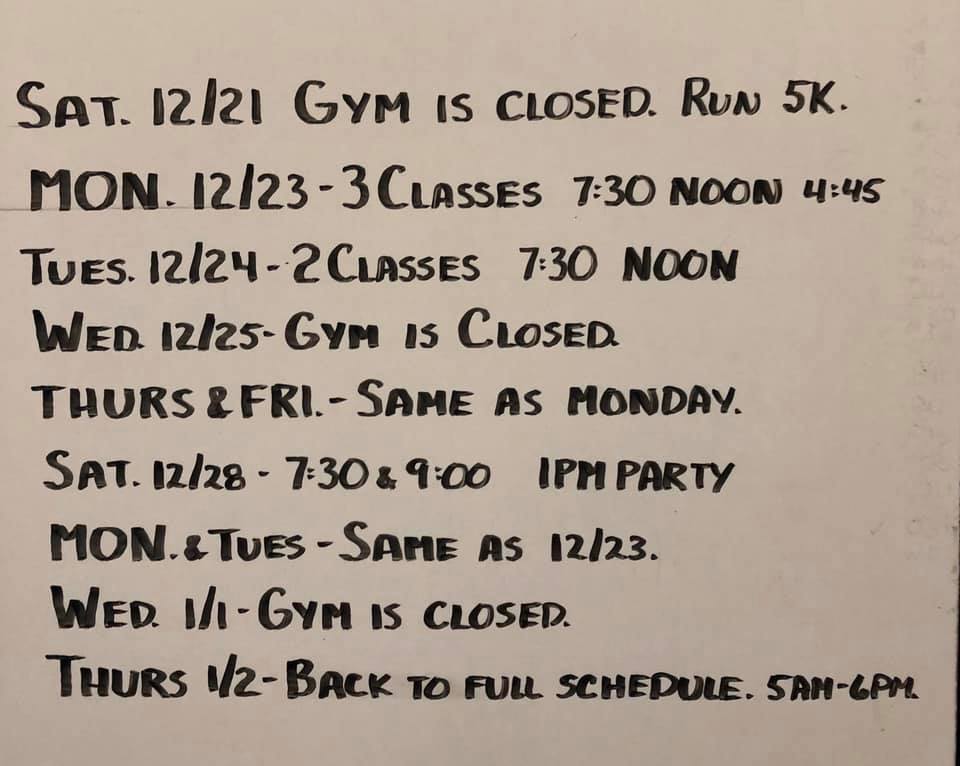 Sat. 12/21 Gym is closed. Run 5K.
Mon. 12/23 - 3 Classes 7:30 Noon 4:45
Tues. 12/24 - 2 Classes 7:30 Noon
Wed. 12/25 - Gym is Closed.
Thurs & Fri. - Same as Monday.
Sat. 12/28 - 7:30 & 9:00 1PM Party
Mon. & Tues - Same as 12/23.
Wed. 1/1 - Gym is closed.
Thurs 1/2 - Back to full schedule. 5AM-6PM.